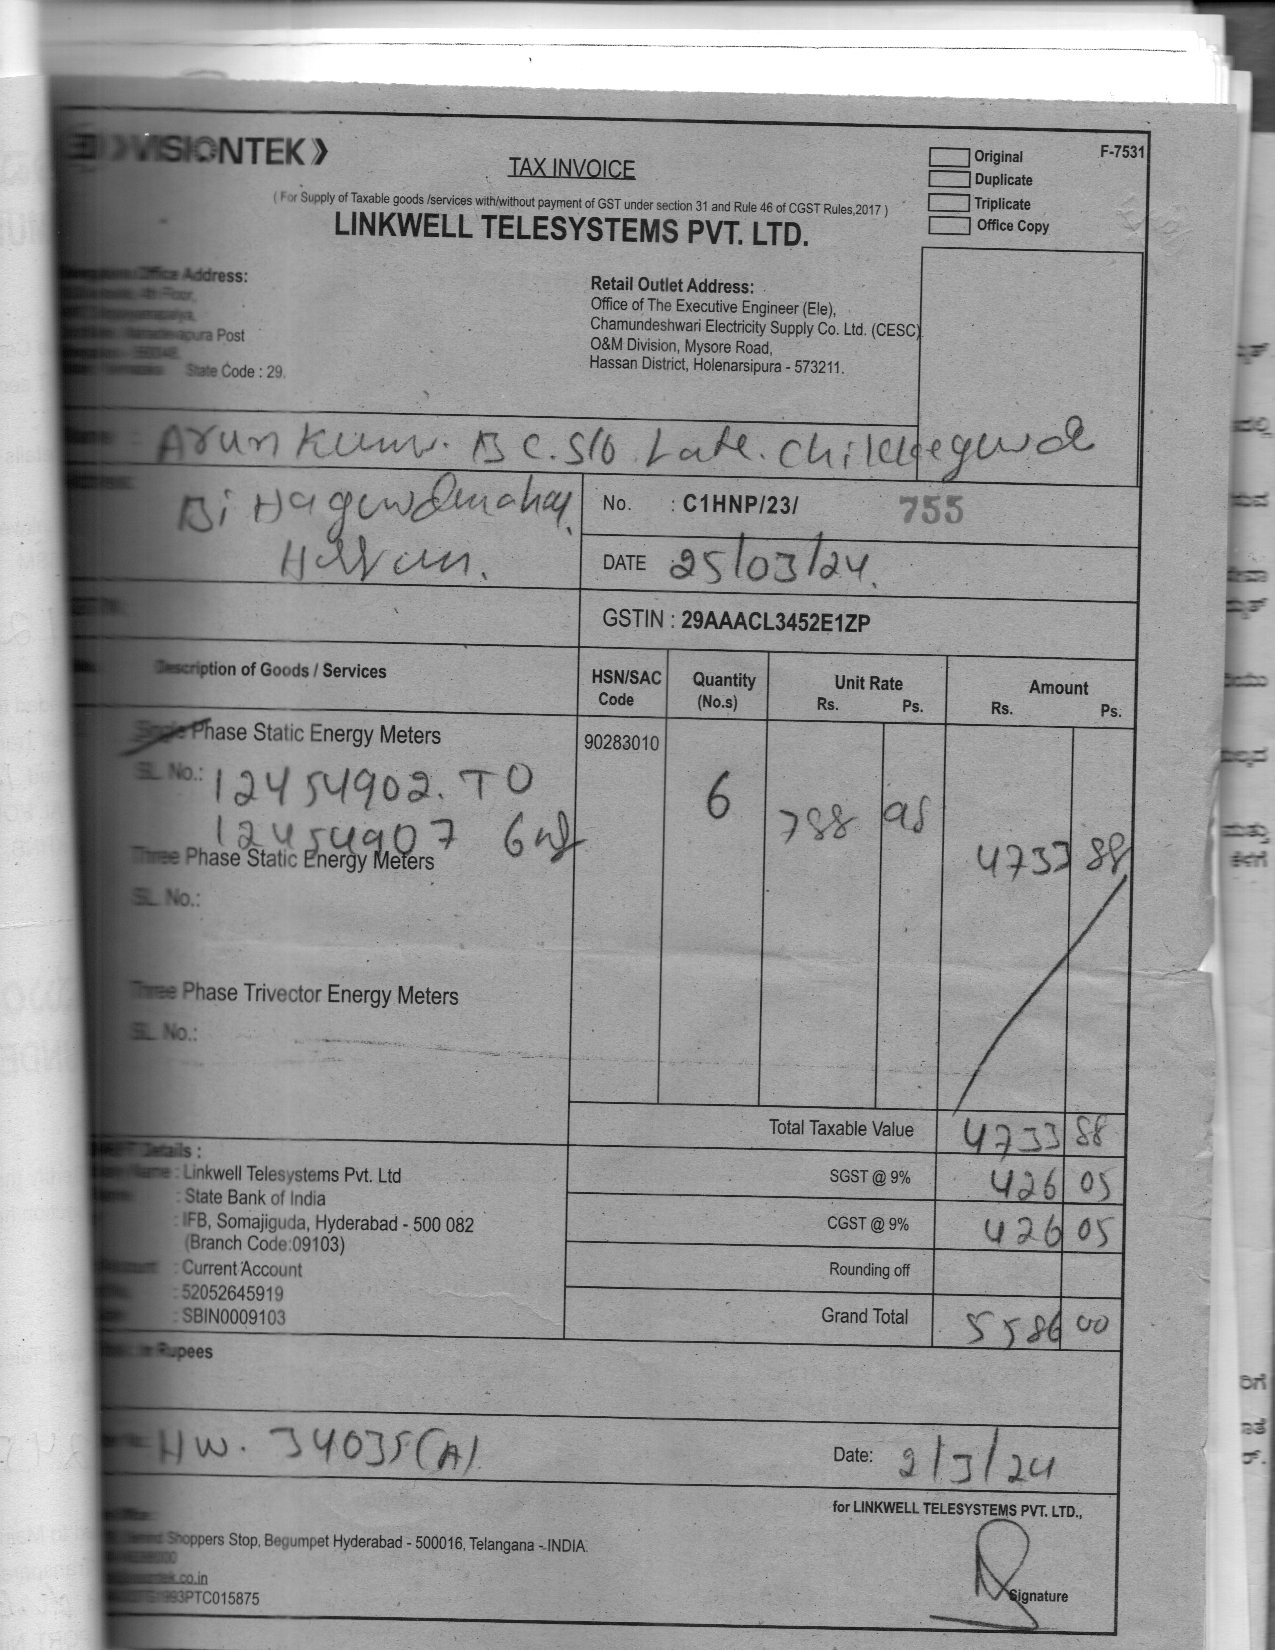 VISIONTEK
F-7531
TAX INVOICE
Original
Duplicate
Triplicate
Office Copy
( For Supply of Taxable goods /services with/without payment of GST under section 31 and Rule 46 of CGST Rules,2017 )
LINKWELL TELESYSTEMS PVT. LTD.
Office Address:
4th Floor,
Post
State Code : 29.
Retail Outlet Address:
Office of The Executive Engineer (Ele),
Chamundeshwari Electricity Supply Co. Ltd. (CESC)
O&M Division, Mysore Road,
Hassan District, Holenarsipura - 573211.
Arun Kumar. B C. S/o. Late. Chikkegowda
Hassan.
No. : C1HNP/23/ 755
DATE 25/03/24.
GSTIN : 29AAACL3452E1ZP
Description of Goods / Services
HSN/SAC Code
Quantity (No.s)
Unit Rate Rs. Ps.
Amount Rs. Ps.
Single Phase Static Energy Meters
90283010
SL. No.: 12454902. TO
12454907
6
788 98
4733 88
Three Phase Static Energy Meters
SL. No.:
Three Phase Trivector Energy Meters
SL. No.:
Total Taxable Value 4733 88
SGST @ 9% 426 05
CGST @ 9% 426 05
Rounding off
Grand Total 5586 00
Details :
Name : Linkwell Telesystems Pvt. Ltd
: State Bank of India
: IFB, Somajiguda, Hyderabad - 500 082
(Branch Code:09103)
: Current Account
: 52052645919
: SBIN0009103
in Rupees
HW. 34035(A)
Date: 2/3/24
for LINKWELL TELESYSTEMS PVT. LTD.,
Shoppers Stop, Begumpet Hyderabad - 500016, Telangana - INDIA.
1993PTC015875
Signature